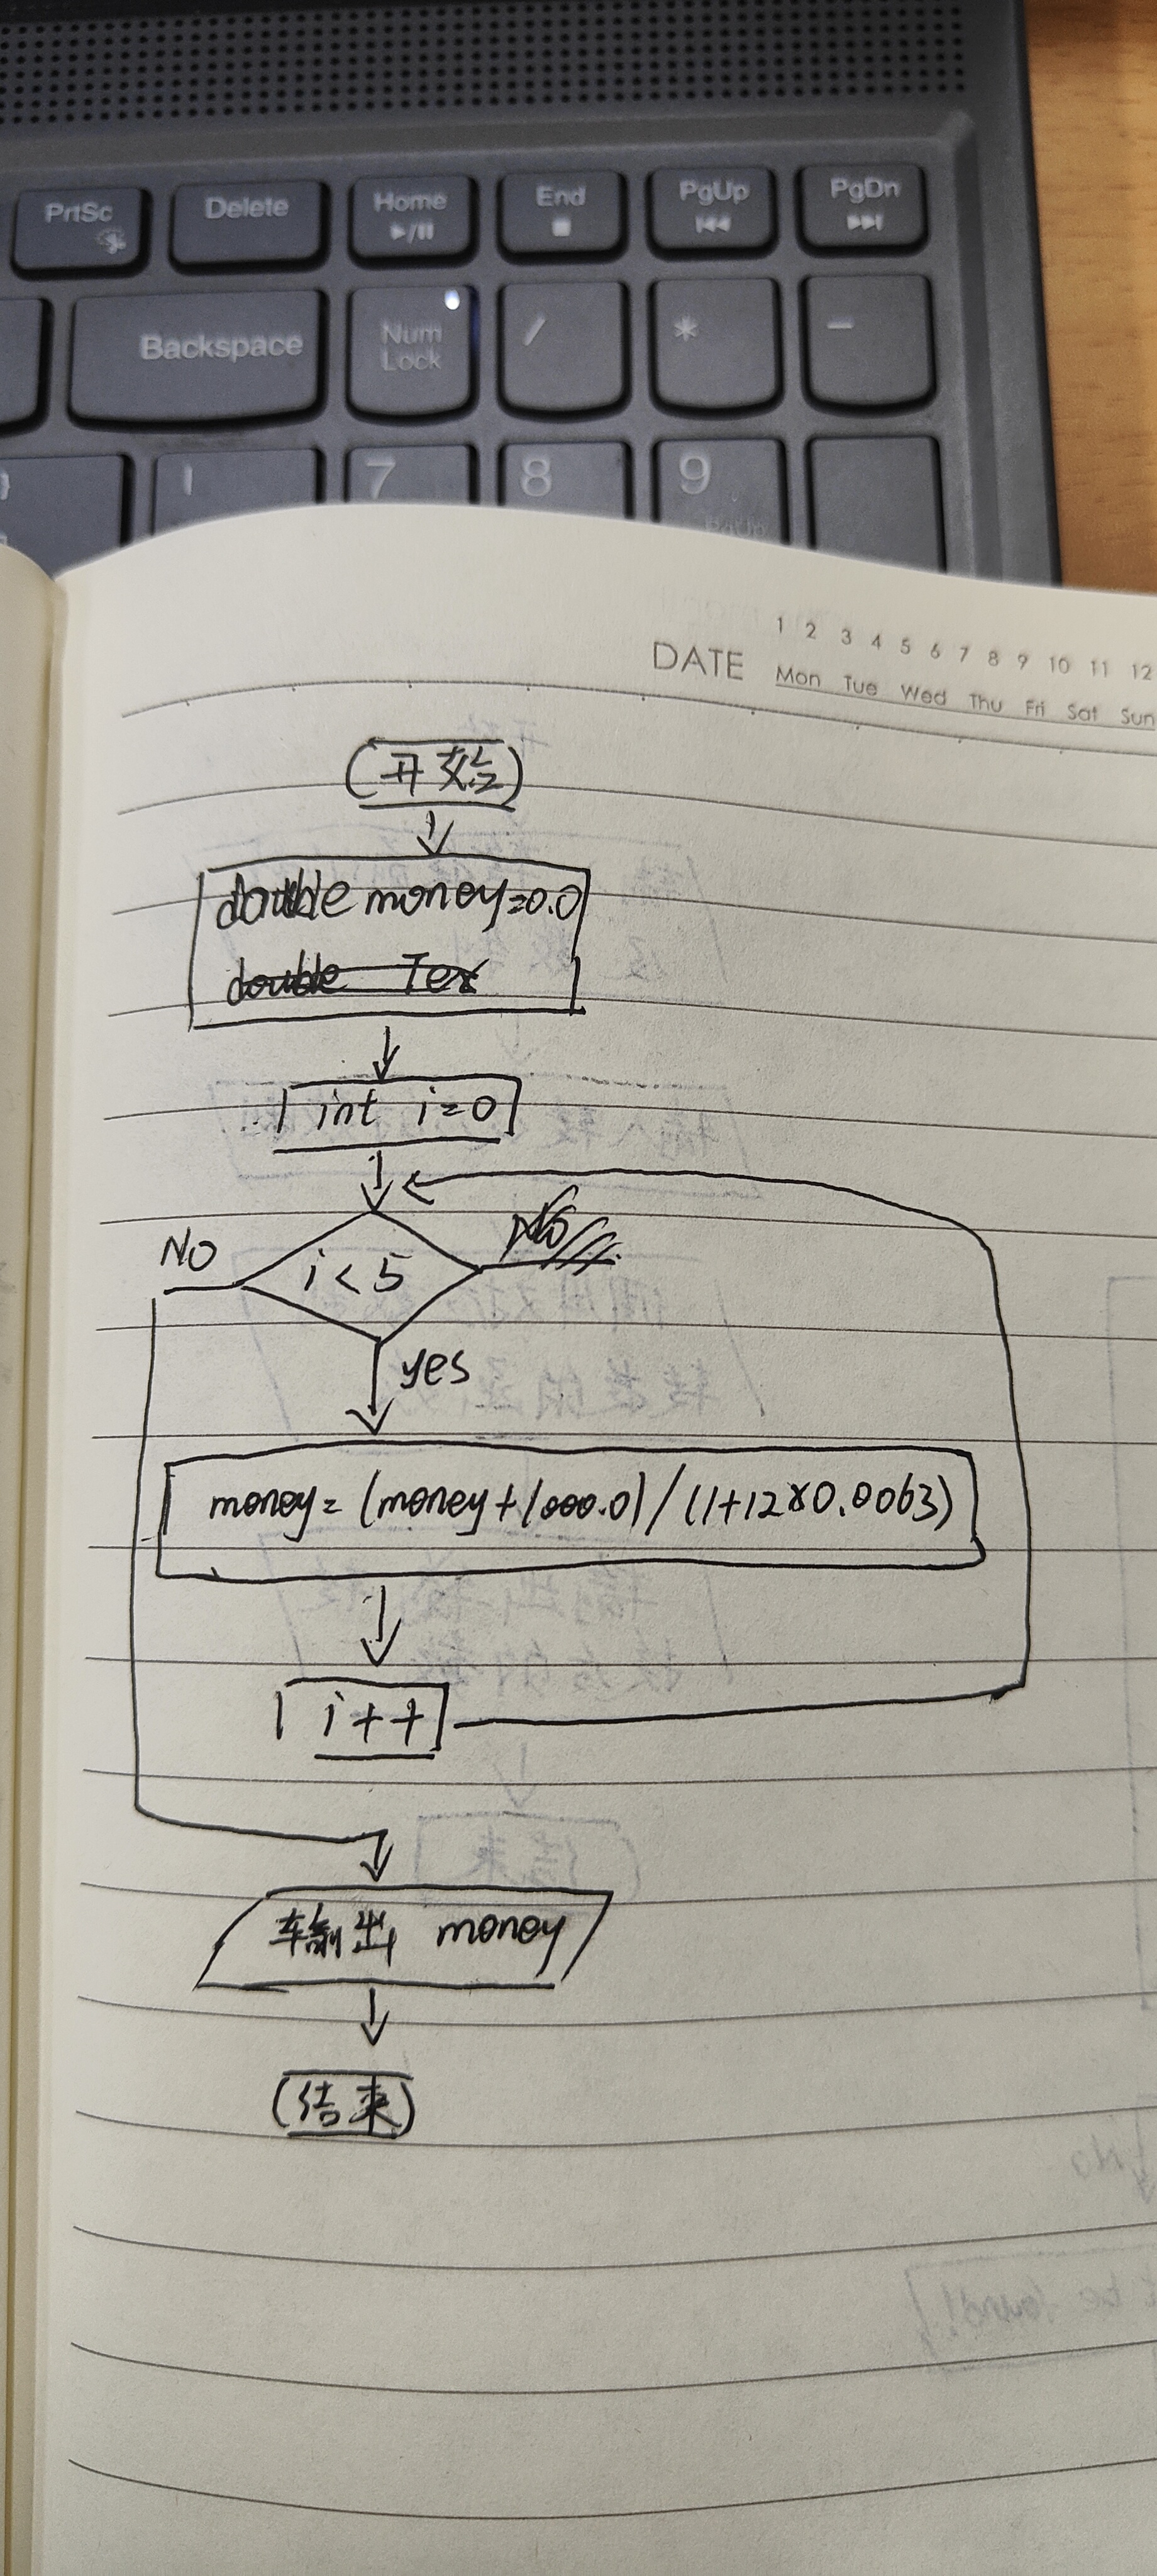 PrtSc Delete Home End PgUp PgDn
Backspace Num Lock / * -
7 8 9
DATE
1 2 3 4 5 6 7 8 9 10 11 12
Mon Tue Wed Thu Fri Sat Sun
开始
double money=0.0
double Tex
int i=0
NO
i<5
No
yes
money=(money+1000.0)/(1+12×0.0063)
i++
输出 money
结束